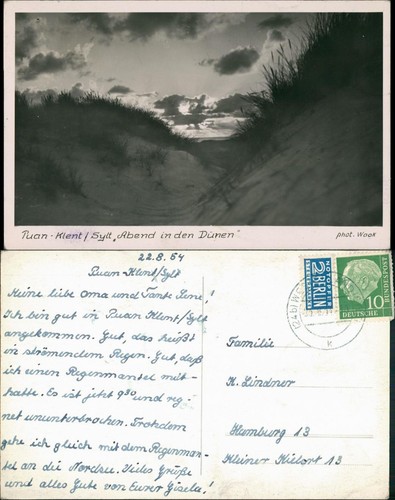 Puan-Klent/Sylt „Abend in den Dünen"
phot. Wook
22.8.54
Puan-Klent/Sylt
Meine liebe Oma und Tante Lene!
Ich bin gut in Puan Klent/Sylt
angekommen. Gut, das heißt
in strömendem Regen. Gut, daß
ich einen Regenmantel mit-
hatte. Es ist jetzt 9³⁰ und reg-
net ununterbrochen. Trotzdem
gehe ich gleich mit dem Regenman-
tel an die Nordsee. Viele Grüße
und alles Gute von Eurer Gisela!
NOTOPFER
2 BERLIN
STEUERMARKE
DEUTSCHE BUNDESPOST
10
(24b) WES
k
Familie
K. Lindner
Hamburg 13
Kleiner Kielort 13